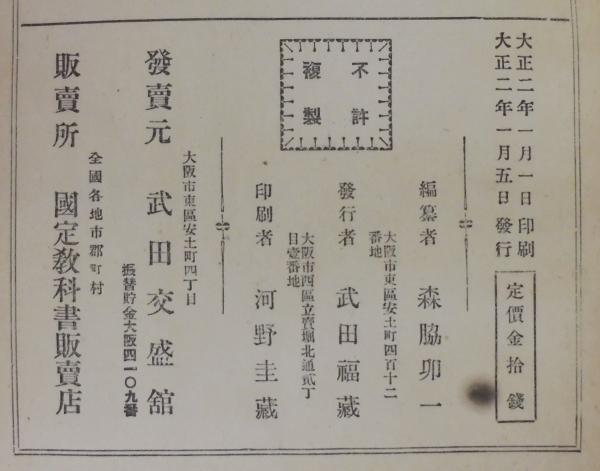 大正二年一月一日印刷
大正二年一月五日發行
定價金拾錢
不許
複製
編纂者 森脇卯一
大阪市東區安土町四百十二
番地
發行者 武田福藏
大阪市西區立賣堀北通貳丁
目壹番地
印刷者 河野圭藏
大阪市東區安土町四丁目
發賣元 武田交盛舘
振替貯金大阪四一〇九番
全國各地市郡町村
販賣所 國定敎科書販賣店